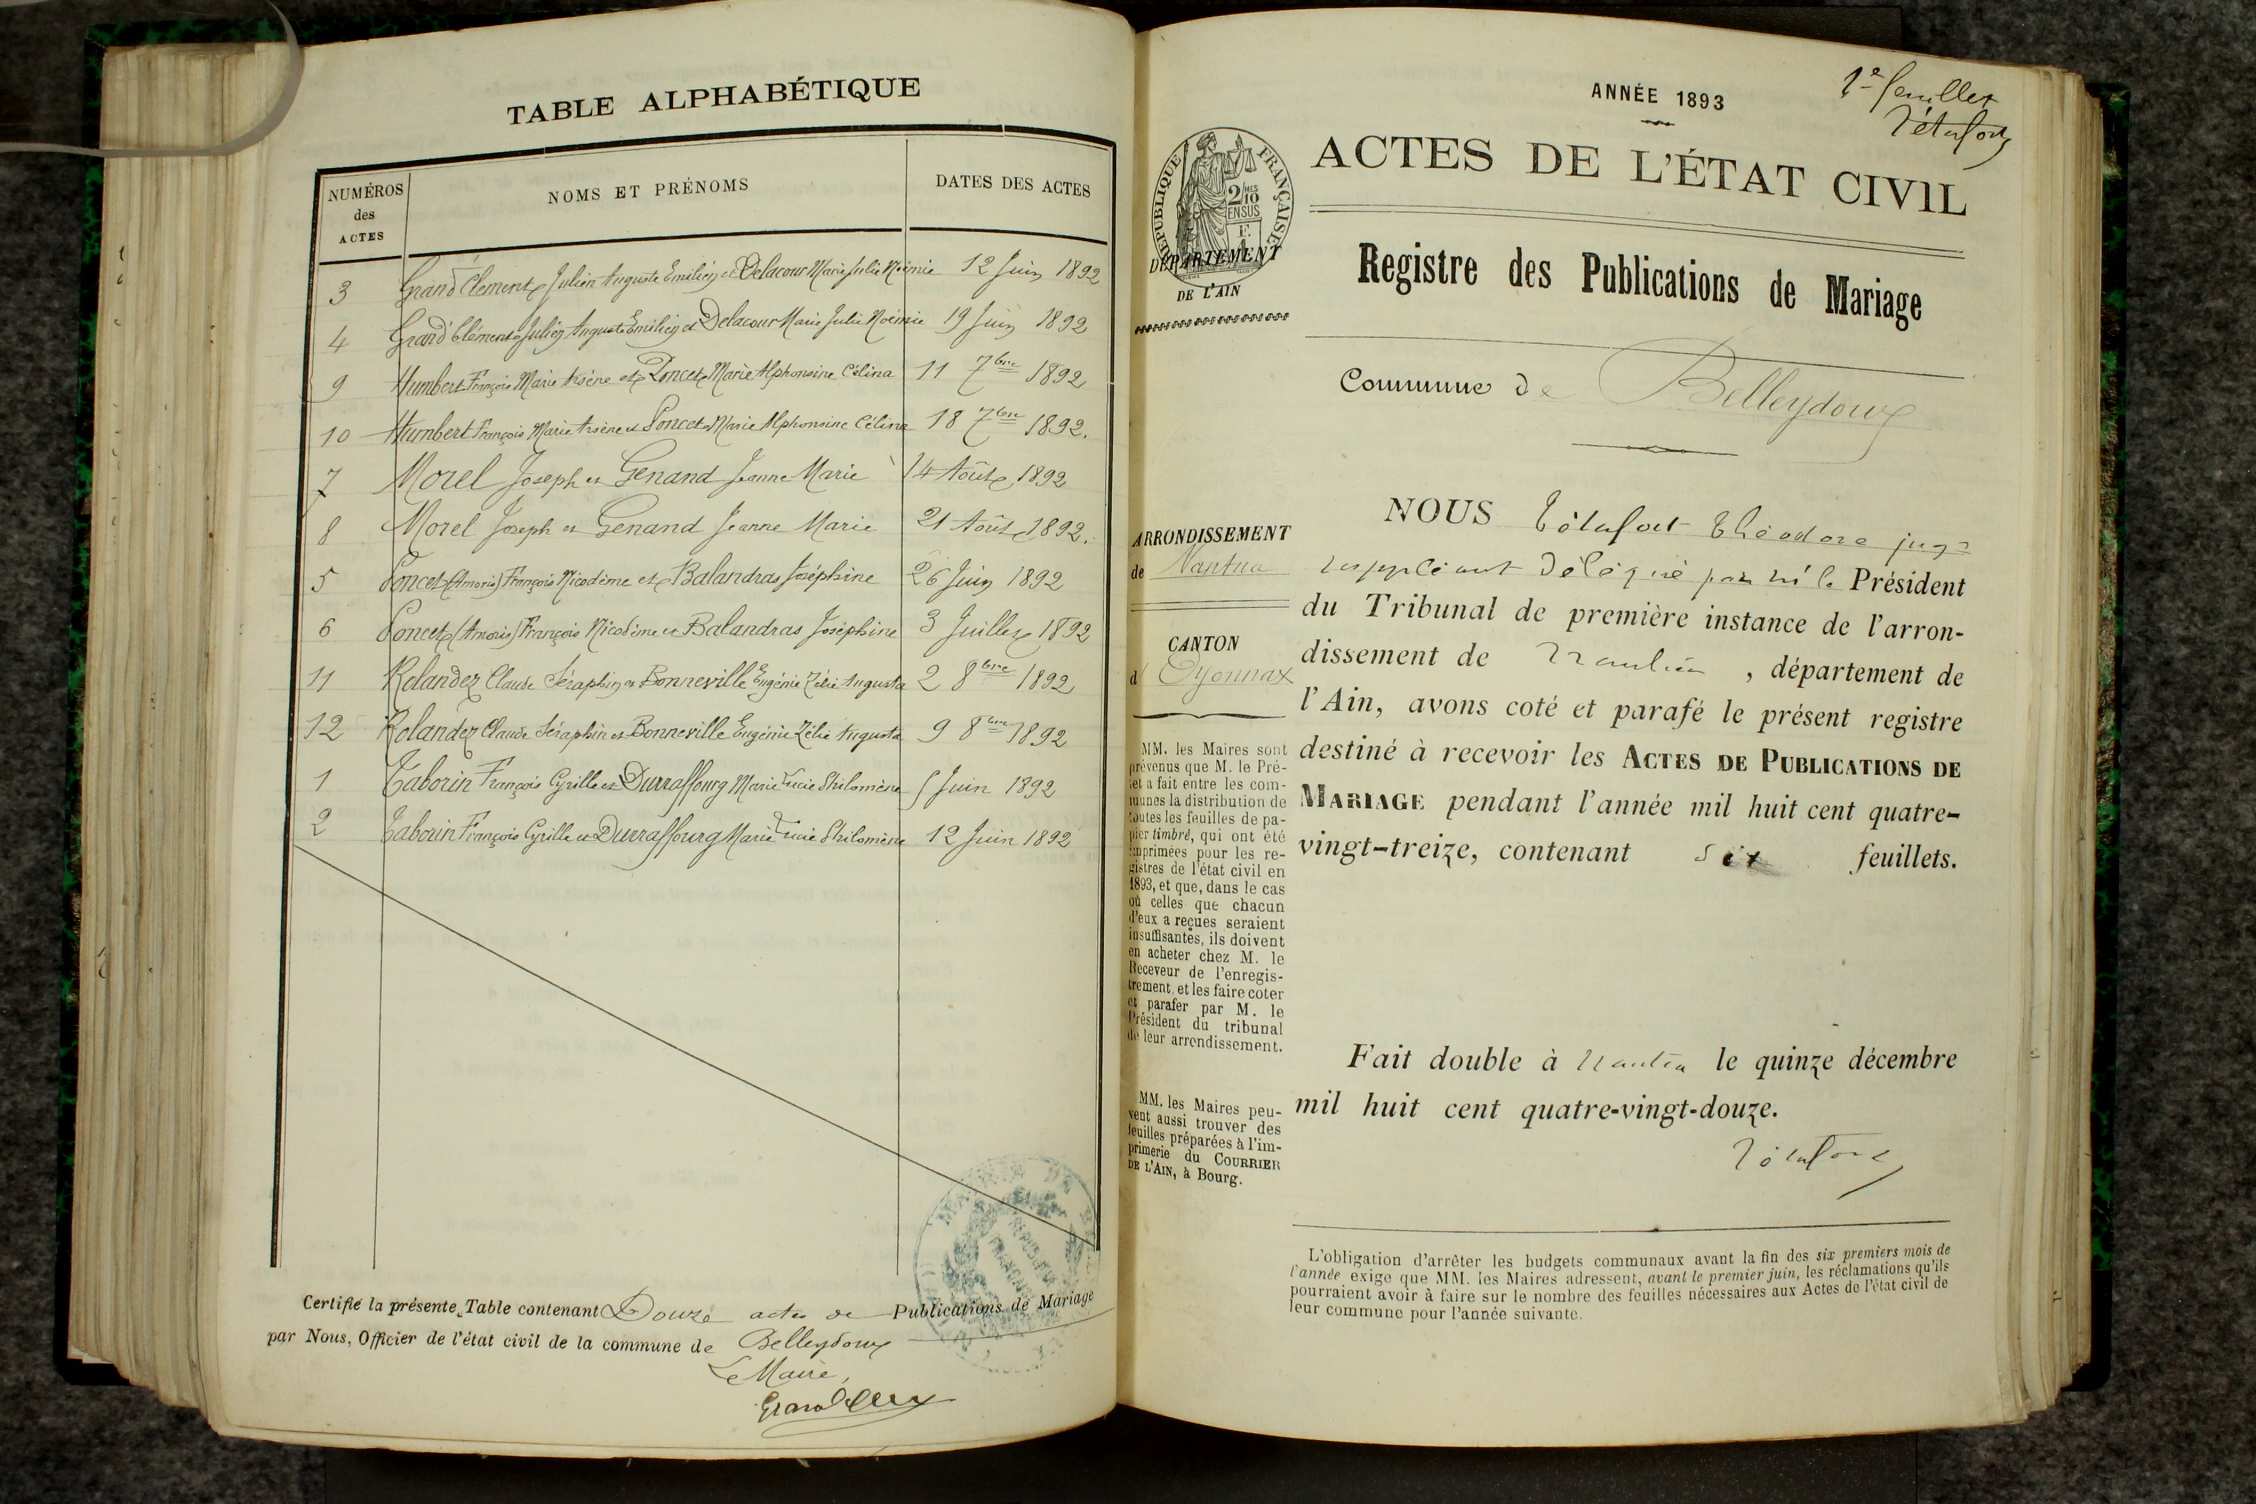 TABLE ALPHABÉTIQUE
NUMÉROS des ACTES
NOMS ET PRÉNOMS
DATES DES ACTES
3 Grand Clément Julien Auguste Emilien et Delacour Marie Julie Noémie 12 Juin 1892
4 Grand Clément Julien Auguste Emilien et Delacour Marie Julie Noémie 19 Juin 1892
9 Humbert François Marie Arsène et Poncet Marie Alphonsine Célina 11 7bre 1892
10 Humbert François Marie Arsène et Poncet Marie Alphonsine Célina 18 7bre 1892.
7 Morel Joseph et Genand Jeanne Marie 14 Août 1892
8 Morel Joseph et Genand Jeanne Marie 21 Août 1892.
5 Poncet (Amoris) François Nicodème et Balandras Joséphine 26 Juin 1892
6 Poncet (Amoris) François Nicodème et Balandras Joséphine 3 Juillet 1892
11 Rolandez Claude Séraphin et Bonneville Eugénie Zélie Augusta 2 8bre 1892
12 Rolandez Claude Séraphin et Bonneville Eugénie Zélie Augusta 9 8bre 1892
1 Taborin François Cyrille et Durraffourg Marie Lucie Philomène 5 Juin 1892
2 Taborin François Cyrille et Durraffourg Marie Lucie Philomène 12 Juin 1892
Certifié la présente Table contenant Douze actes de Publications de Mariage
par Nous, Officier de l'état civil de la commune de Belleydoux
Le Maire,
ANNÉE 1893
1er feuillet
ACTES DE L'ÉTAT CIVIL
RÉPUBLIQUE FRANÇAISE
2/10 EN SUS
DÉPARTEMENT
DE L'AIN
Registre des Publications de Mariage
Commune de Belleydoux
ARRONDISSEMENT
de Nantua
CANTON
d'Oyonnax
NOUS Théodore juge
suppléant délégué par Mr le Président
du Tribunal de première instance de l'arron-
dissement de Nantua, département de
l'Ain, avons coté et parafé le présent registre
destiné à recevoir les ACTES DE PUBLICATIONS DE
MARIAGE pendant l'année mil huit cent quatre-
vingt-treize, contenant six feuillets.
MM. les Maires sont
prévenus que M. le Pré-
fet a fait entre les com-
munes la distribution de
toutes les feuilles de pa-
pier timbré, qui ont été
imprimées pour les re-
gistres de l'état civil en
1893, et que, dans le cas
où celles que chacun
d'eux a reçues seraient
insuffisantes, ils doivent
en acheter chez M. le
Receveur de l'enregis-
trement, et les faire coter
et parafer par M. le
Président du tribunal
de leur arrondissement.
MM. les Maires peu-
vent aussi trouver des
feuilles préparées à l'im-
primerie du COURRIER
DE L'AIN, à Bourg.
Fait double à Nantua le quinze décembre
mil huit cent quatre-vingt-douze.
L'obligation d'arrêter les budgets communaux avant la fin des six premiers mois de
l'année exige que MM. les Maires adressent, avant le premier juin, les réclamations qu'ils
pourraient avoir à faire sur le nombre des feuilles nécessaires aux Actes de l'état civil de
leur commune pour l'année suivante.